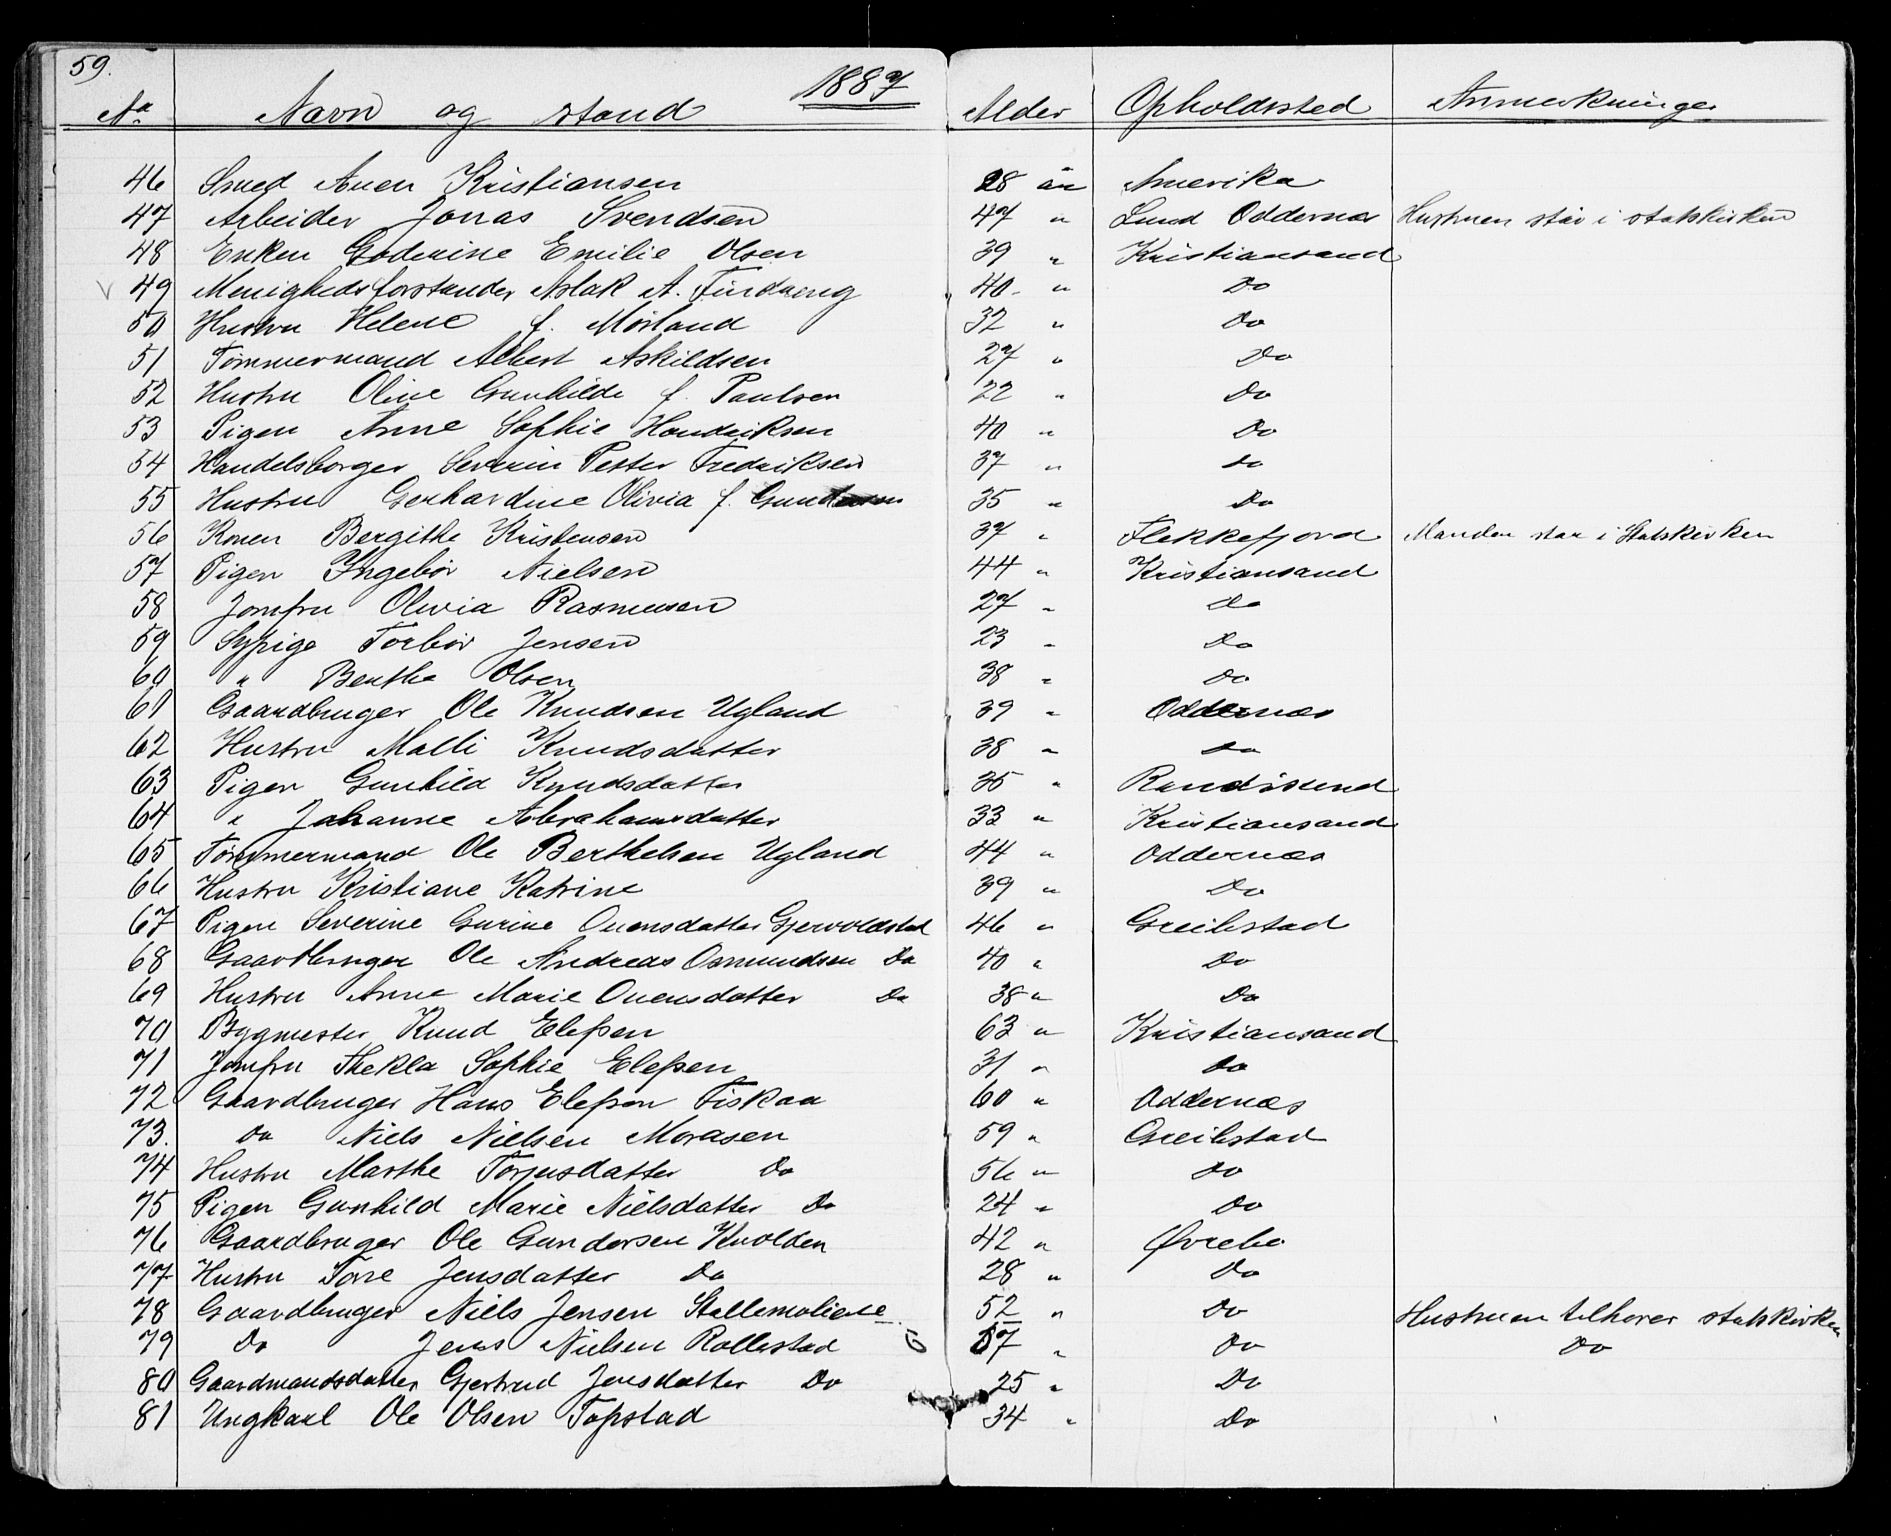 59.
No Navn og stand 1887 Alder Opholdssted Anmerkninger
46 Smed Anen Kristiansen 28 år Amerika
47 Arbeider Jonas Svendsen 47 " Lund Oddernæs Hustruen står i statskirken
48 Enken Goderine Emilie Olsen 39 " Kristiansand
49 Menighedsforstander Aslak A. 40 " Do
50 Hustru Helene f. Mørland 32 " Do
51 Tømmermand Albert Askildsen 27 " Do
52 Hustru Oline Gunhilde f. Paulsen 22 " Do
53 Pigen Anne Sophie Hendriksen 40 " Do
54 Handelsborger Severin Petter Fredriksen 37 " do
55 Hustru Gerhardine Olivia f. Gundersen 35 " Do
56 Konen Bergithe Kristensen 37 " Flekkefjord Manden staar i Statskirken
57 Pigen Ingebør Nielsen 44 " Kristiansand
58 Jomfru Olivia Rasmusen 27 " Do
59 Sypige Torbør Jensen 23 " Do
60 " Berthe Olsen 38 " Do
61 Gaardbruger Ole Knudsen Ugland 39 " Oddernæs
62 Hustru Malli Knudsdatter 38 " do
63 Pigen Gunhild Knudsdatter 35 " Randøsund
64 " Johanne Abrahamsdatter 33 " Kristiansand
65 Tømmermand Ole Berthelsen Ugland 44 " Oddernæs
66 Hustru Kristiane Katrine 39 " Do
67 Pigen Severine Gurine Onensdatter Gjervoldstad 46 " Greibstad
68 Gaardbruger Ole Andreas Osmundsen Do 40 " Do
69 Hustru Anne Marie Onensdatter Do 38 " Do
70 Bygmester Knud Elefsen 63 " Kristiansand
71 Jomfru Thekla Sophie Elefsen 31 " Do
72 Gaardbruger Hans Elefsen Fiskaa 60 " Oddernæs
73. Do Niels Nielsen Moraasen 59 " Greibstad
74 Hustru Marthe Torjusdatter Do 56 " Do
75 Pigen Gunhild Marie Nielsdatter Do 24 " Do
76 Gaardbruger Ole Gundersen Kvolden 42 " Øvrebo
77 Hustru Torre Jensdatter Do 28 " Do
78 Gaardbruger Niels Jensen Stallemoliene 52 " Do Hustruen tilhører statskirken
79 Do Jens Nielsen Rollestad 57 " Do Do
80 Gaardmandsdatter Gjertrud Jensdatter Do 25 " Do
81 Ungkarl Ole Olsen Topstad 34 " Do